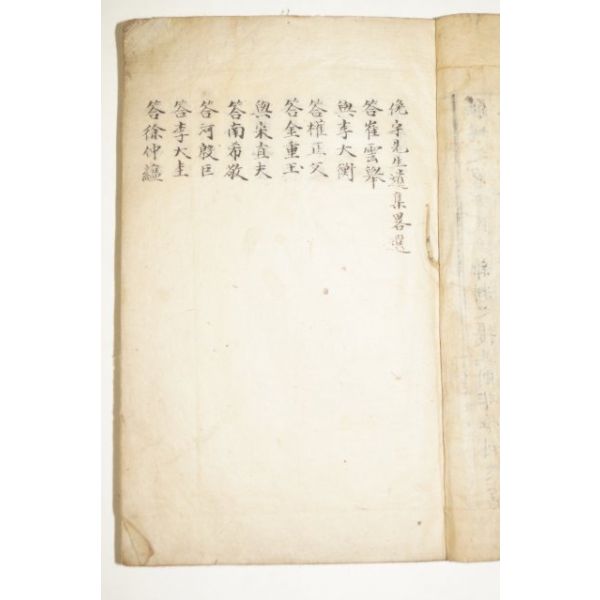 俛宇先生遺集畧選
答崔雲擧
與李大衡
答權正父
答金重玉
與宋直夫
答南希敬
答河殷巨
答李大圭
答徐仲蘊